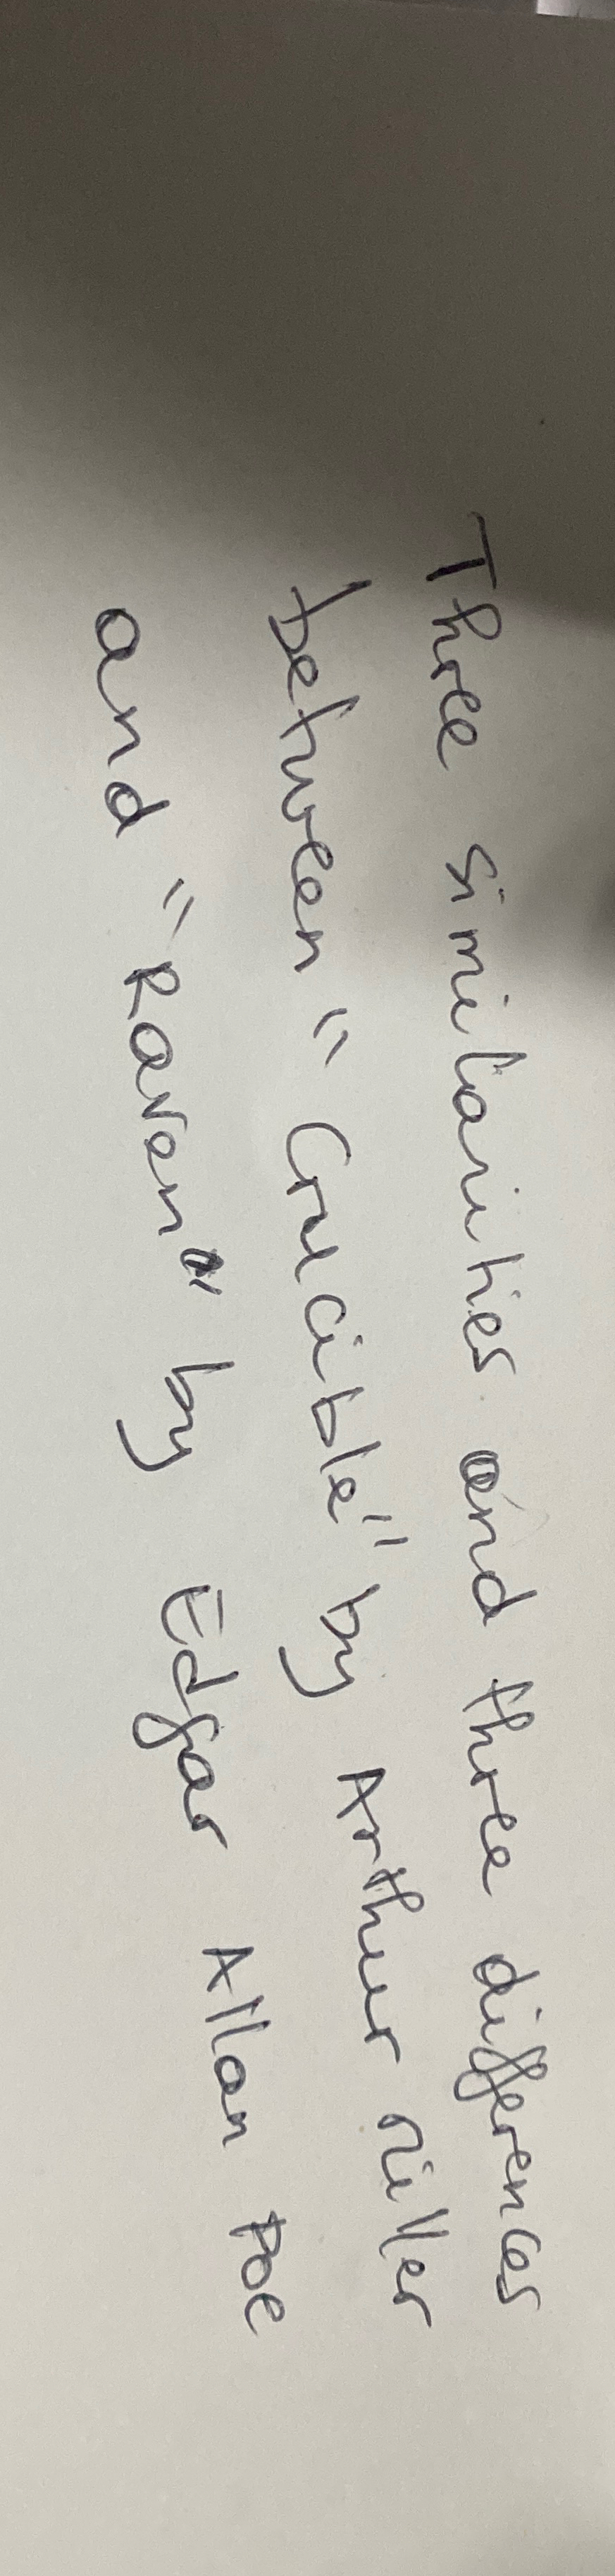 Three similarities and three differences
between "Crucible" by Arthur Miller
and "Raven" by Edgar Allan Poe